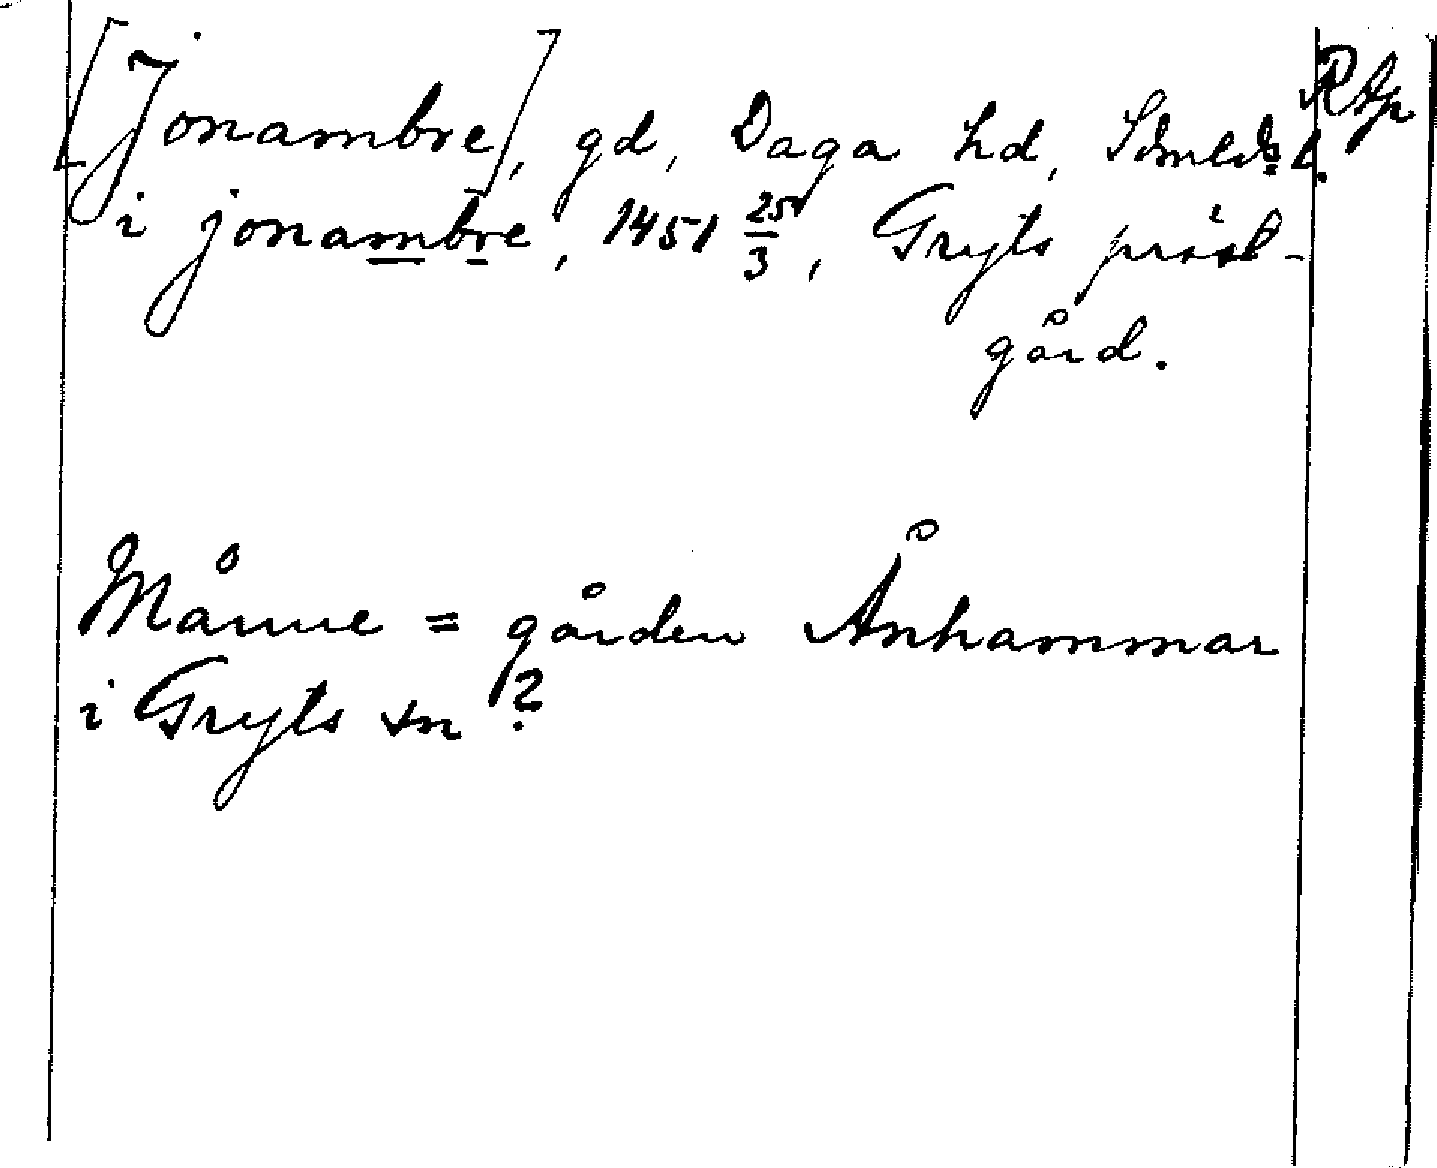 [Jonambre], gd, Daga hd, Sdmlds l. RAp
i jonambre, 1451 25/3, Gryts präst-
gård.
Månne = gården Ånhammar
i Gryts sn ?